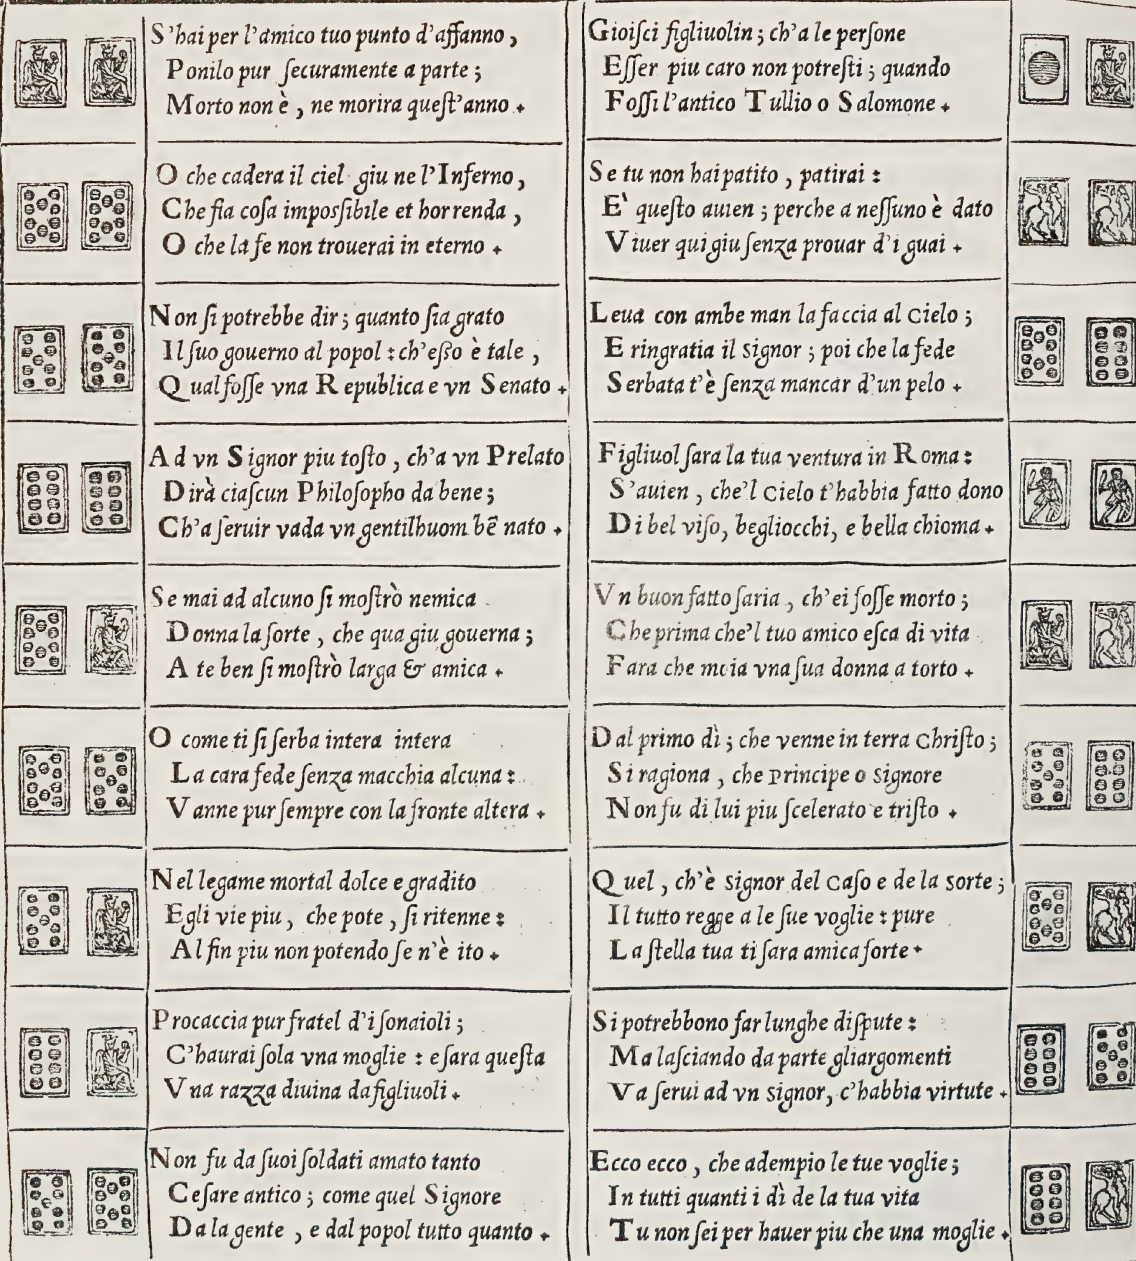 S'hai per l'amico tuo punto d'affanno,
Ponilo pur ſecuramente a parte;
Morto non è, ne morira queſt'anno.
O che cadera il ciel giu ne l'Inferno,
Che fia coſa impoſsibile et horrenda,
O che la fe non trouerai in eterno.
Non ſi potrebbe dir; quanto ſia grato
Il ſuo gouerno al popol: ch'eſſo è tale,
Qual foſſe vna Republica e vn Senato.
Ad vn Signor piu toſto, ch'a vn Prelato
Dirà ciaſcun Philoſopho da bene;
Ch'a ſeruir vada vn gentilhuom bē nato.
Se mai ad alcuno ſi moſtrò nemica
Donna la ſorte, che qua giu gouerna;
A te ben ſi moſtrò larga & amica.
O come ti ſi ſerba intera intera
La cara fede ſenza macchia alcuna:
Vanne pur ſempre con la fronte altera.
Nel legame mortal dolce e gradito
Egli vie piu, che pote, ſi ritenne:
Al fin piu non potendo ſe n'è ito.
Procaccia pur fratel d'i ſonaioli;
C'haurai ſola vna moglie: e ſara queſta
Vna razza diuina da figliuoli.
Non fu da ſuoi ſoldati amato tanto
Ceſare antico; come quel Signore
Da la gente, e dal popol tutto quanto.
Gioiſci figliuolin; ch'a le perſone
Eſſer piu caro non potreſti; quando
Foſſi l'antico Tullio o Salomone.
Se tu non hai patito, patirai:
E' queſto auien; perche a neſſuno è dato
Viuer qui giu ſenza prouar d'i guai.
Leua con ambe man la faccia al Cielo;
E ringratia il Signor; poi che la fede
Serbata t'è ſenza mancar d'un pelo.
Figliuol ſara la tua ventura in Roma:
S'auien, che'l Cielo t'habbia fatto dono
Di bel viſo, begliocchi, e bella chioma.
Vn buon fatto ſaria, ch'ei foſſe morto;
Che prima che'l tuo amico eſca di vita
Fara che moia vna ſua donna a torto.
Dal primo dì; che venne in terra Chriſto;
Si ragiona, che Principe o Signore
Non fu di lui piu ſcelerato e triſto.
Quel, ch'è Signor del Caſo e de la sorte;
Il tutto regge a le ſue voglie: pure
La ſtella tua ti ſara amica forte.
Si potrebbono far lunghe diſpute:
Ma laſciando da parte gliargomenti
Va ſerui ad vn signor, c'habbia virtute.
Ecco ecco, che adempio le tue voglie;
In tutti quanti i dì de la tua vita
Tu non ſei per hauer piu che una moglie.